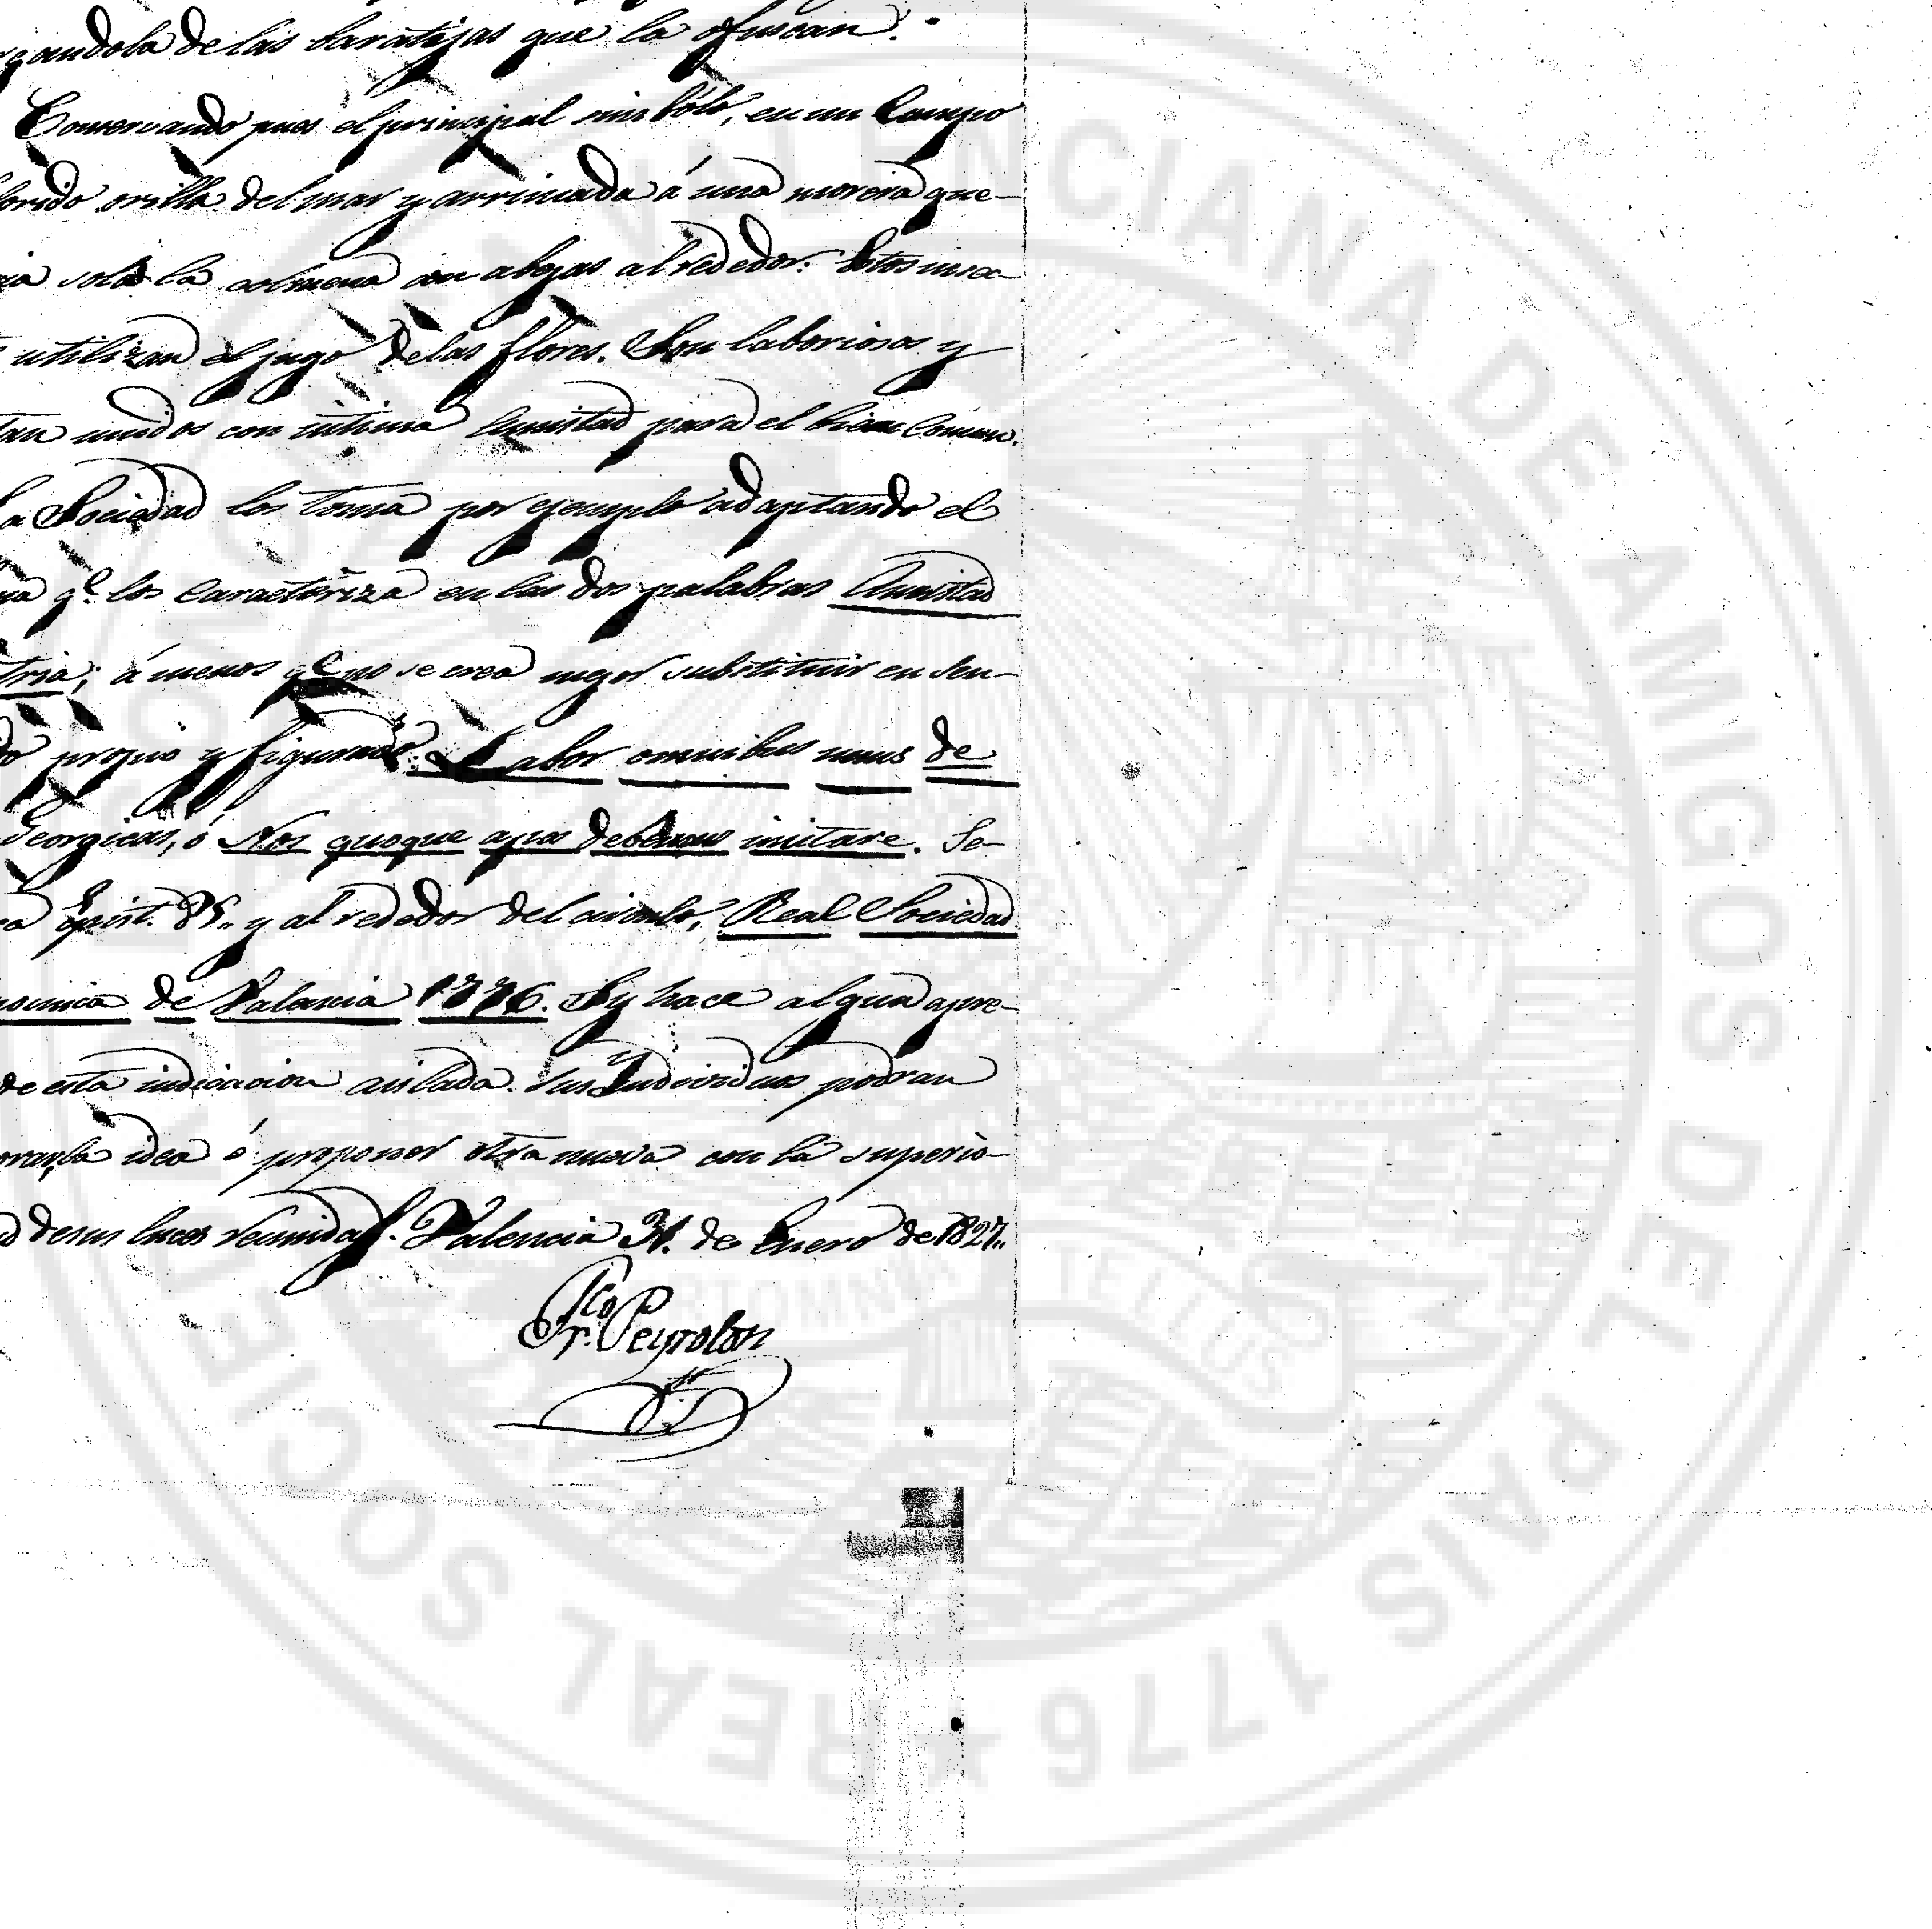 rgandola de las baratijas que la ofuscan.
Conservando pues el principal simbolo, en un Campo
florido orilla del mar y arrimada á una morera que-
ria sola la colmena con abejas al rededor. Estos insec-
utilizan el jugo de las flores. Son laboriosos y
tan unidos con intima Amistad para el bien Comun.
La Sociedad los toma por ejemplo adaptando el
ma q.e los Caracteriza en las dos palabras Amistad
tria; á menos q.e no se crea mejor substituir en sen-
do propio y figurado: Labor omnibus unus de
Georgicas, ó Nos quoque apes debemus imitare. Se-
ca Epist. 85. y al rededor del circulo, Real Sociedad
nomica de Valencia 1776. Sy hace algun apre-
de esta indicacion aislada. Sus Individuos podran
orar la idea ó proponer otra nueva con la superio-
d de sus luces reunidas. Valencia 31. de Enero de 1827.
Fr.co Peyrolon
REAL SOCIE
VALENCIANA DE AMIGOS DEL PAIS 1776